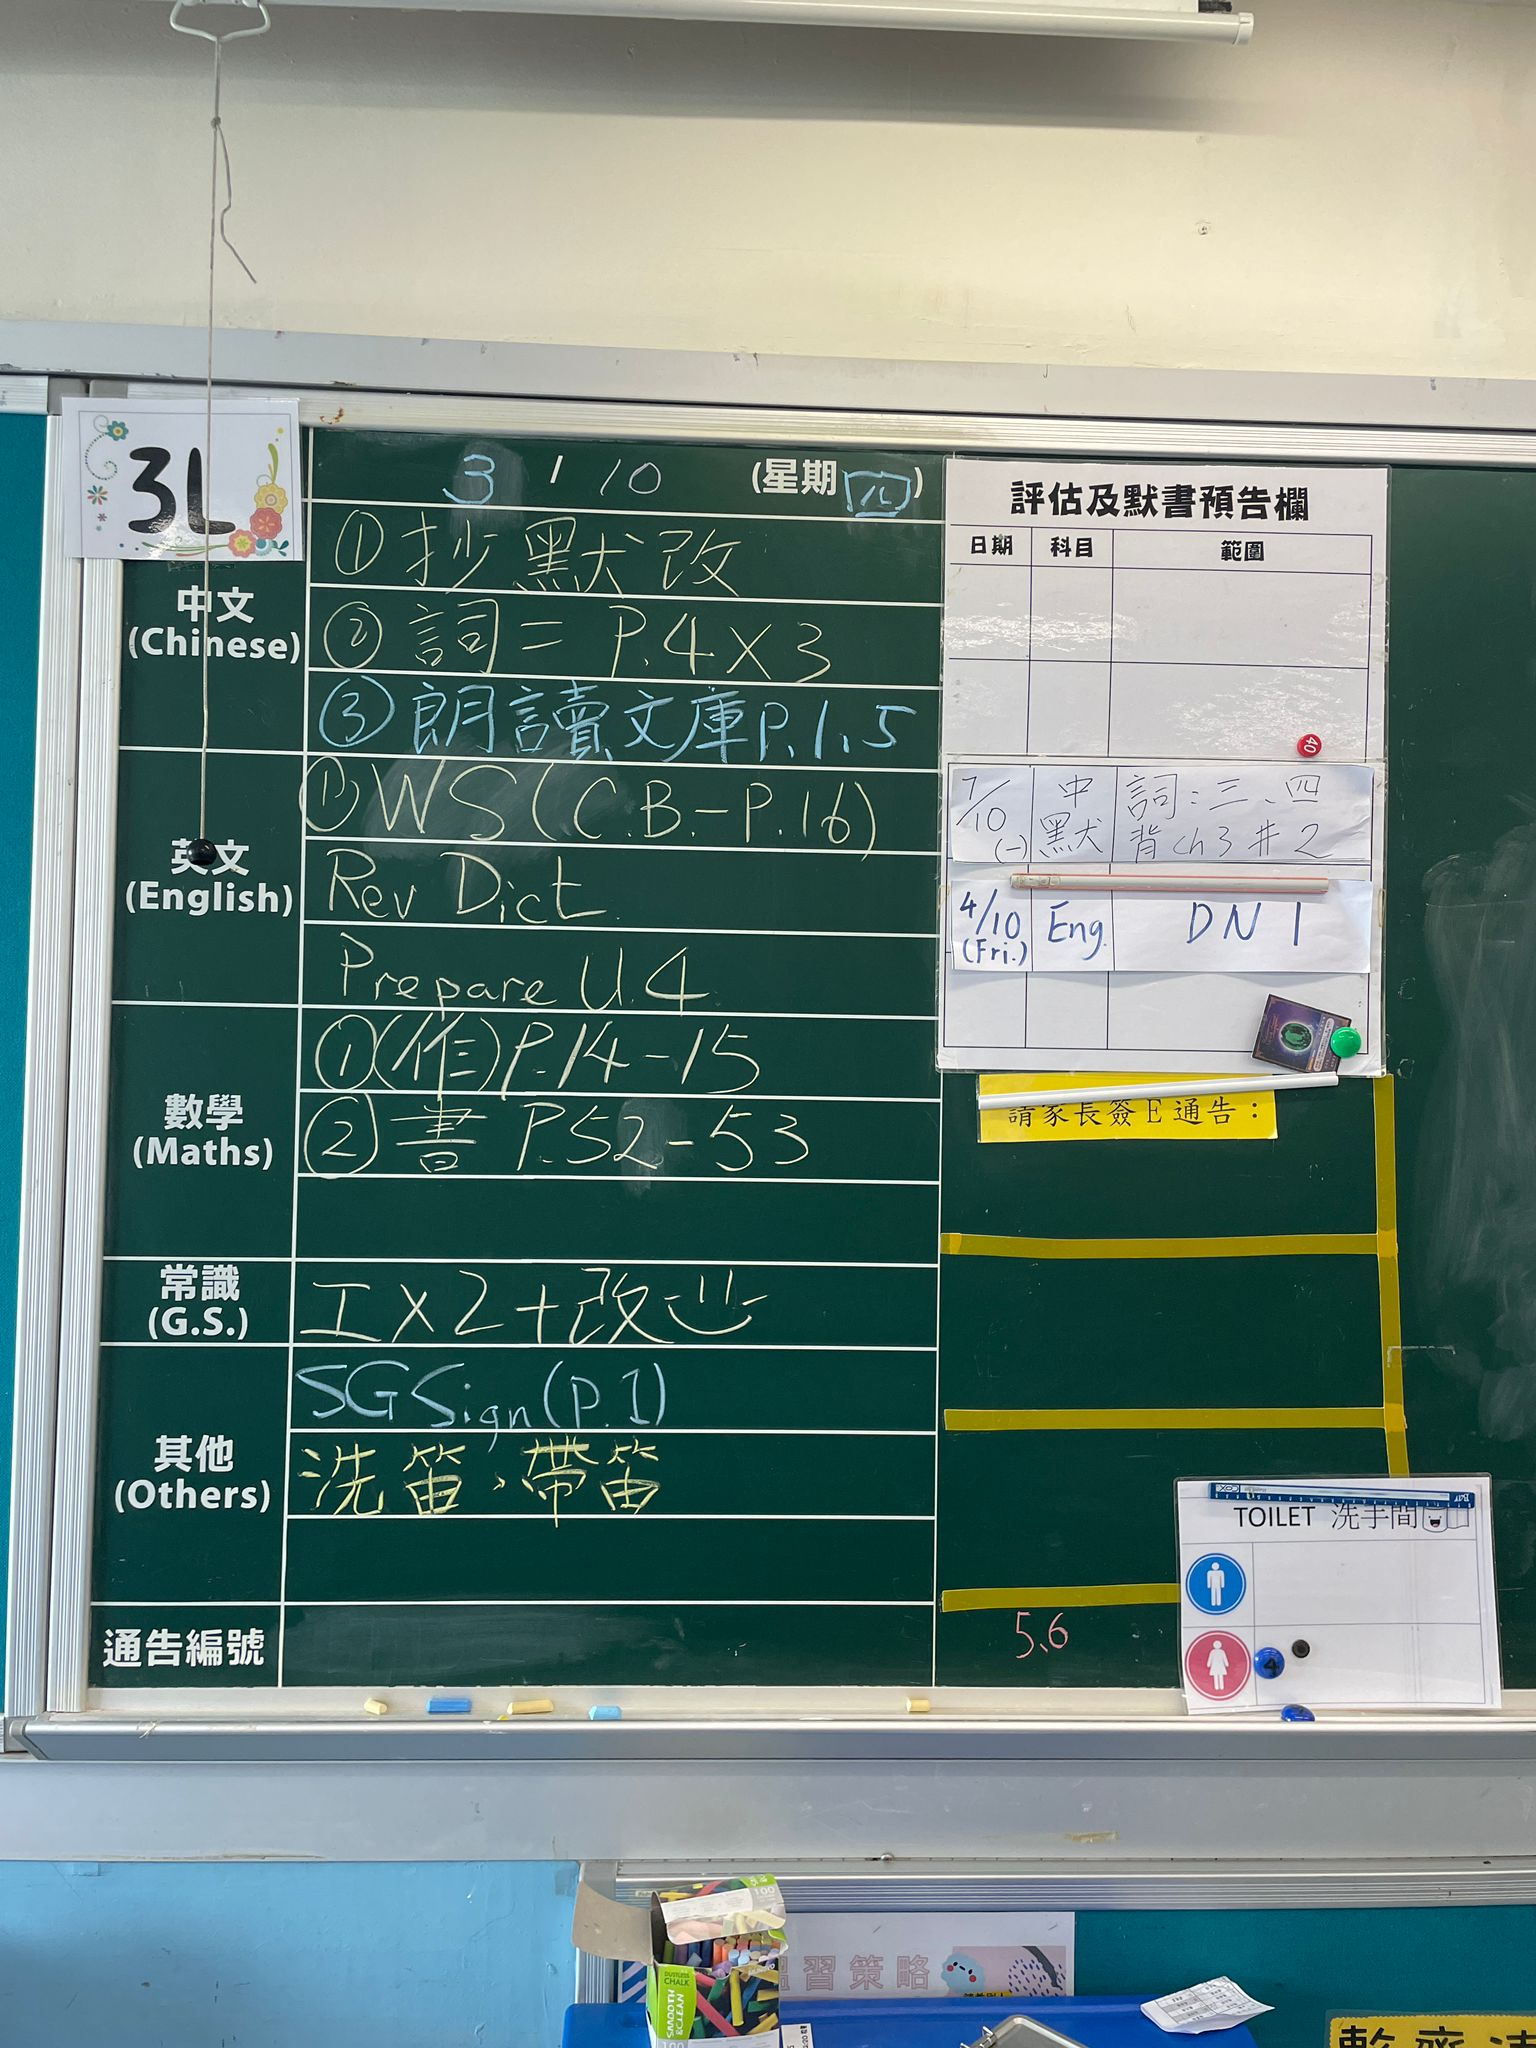 3L
3 / 10 (星期四)
中文
(Chinese)
① 抄默改
② 詞二 P.4 X 3
③ 朗讀文庫P.1、5
英文
(English)
① WS (C.B.-P.16)
Rev Dict.
Prepare U.4
數學
(Maths)
① (作) P.14-15
② 書 P.52-53
常識
(G.S.)
工X2+改
其他
(Others)
SG Sign (P.1)
洗笛、帶笛
通告編號
評估及默書預告欄
日期 科目 範圍
40
7/10 (一) 中默 詞:三、四
背ch3 #2
4/10 (Fri.) Eng. DN 1
請家長簽E通告:
5、6
TOILET 洗手間
4
100
DUSTLESS
CHALK
SMOOTH
&CLEAN
100
習策略